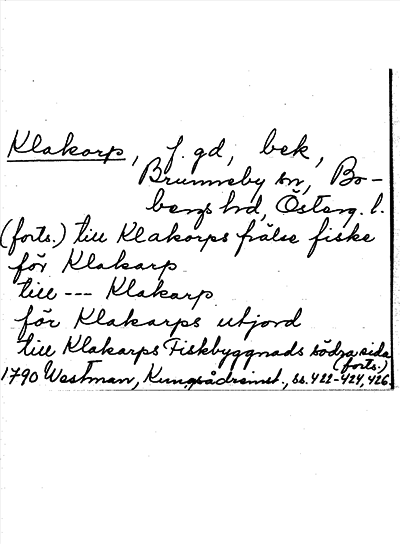 Klakorp, f. gd, bek,
Brunneby sn, Bo-
bergs hd, Österg. l.
(forts.) till Klakorps frälse fiske
för Klakarp
till --- Klakarp
för Klakarps utjord
till Klakarps Fiskbyggnads södra sida
(forts.)
1790 Westman, Kungsådreinst., ss. 422-424, 426.